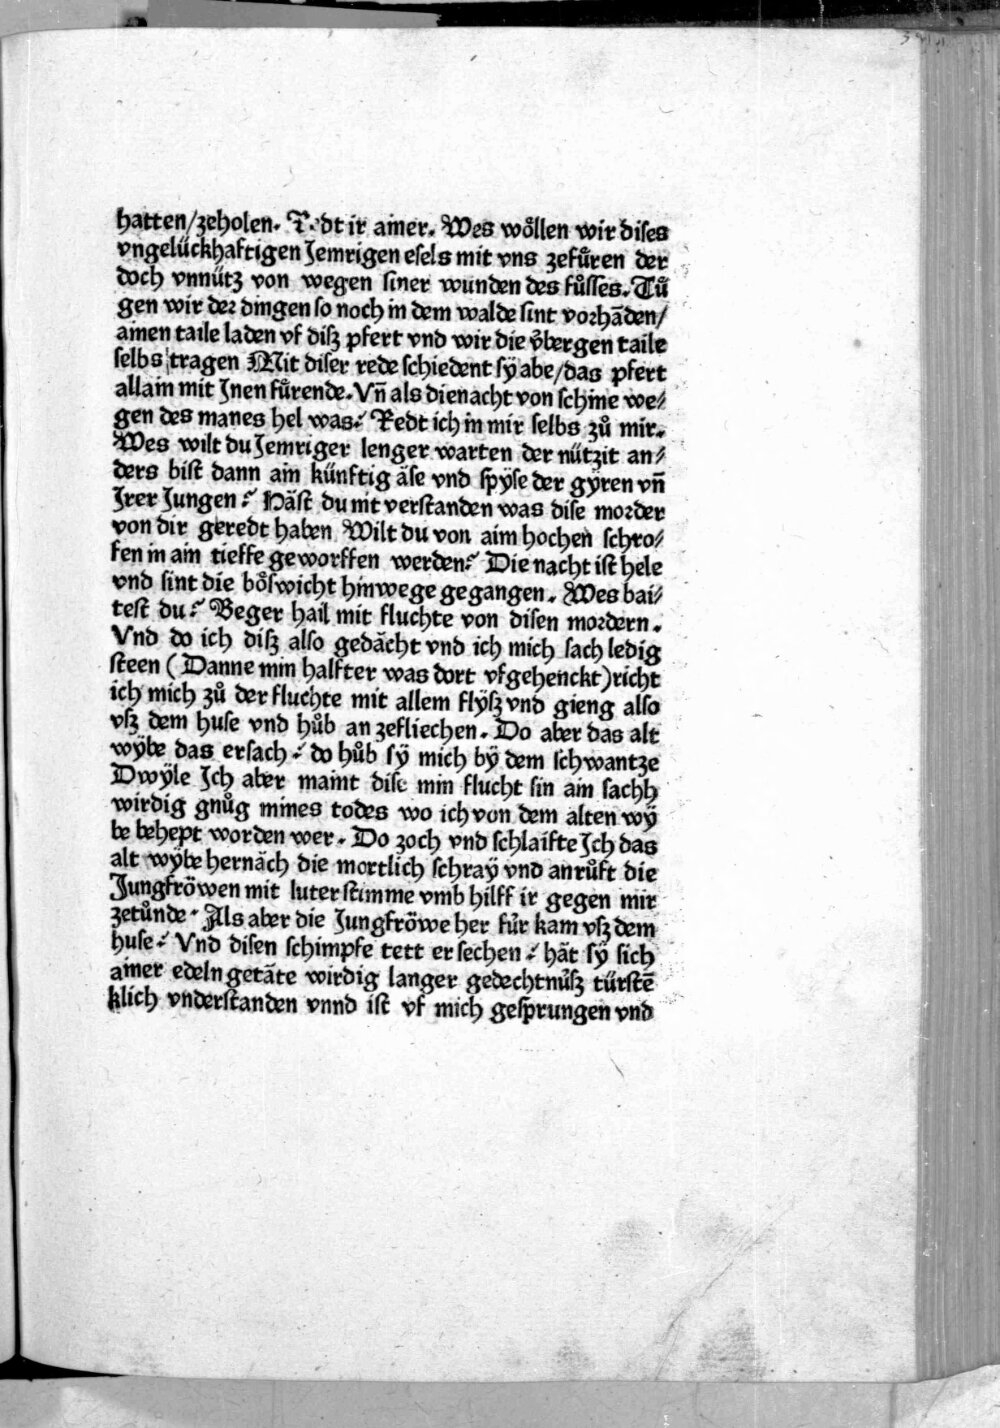 hatten/zeholen. Redt ir ainer. Wes woͤllen wir diſes
vngelückhafftigen Jemrigen eſels mit vns zefuͤren der
doch vnnütz von wegen ſiner wunden des fuͦſſes. Tuͤ
gen wir der dingen ſo noch in dem walde ſint vorhāden/
ainen taile laden vf diſz pfert vnd wir die v̈bergen taile
ſelbs tragen Mit diſer rede ſchiedent ſÿ abe/das pfert
allain mit Jnen fuͤrende. Vn̄ als dienacht von ſchine we⸗
gen des manes hel was⸵ Redt ich in mir ſelbs zuͦ mir.
Wes wilt du Jemriger lenger warten der nützit an⸗
ders biſt dann ain künftig äſe vnd ſpyſe der gyren vn̄
Jrer Jungen⸵ Häſt du nit verſtanden was diſe morder
von dir geredt haben Wilt du von aim hochen ſchro⸗
fen in ain tieffe geworffen werden⸵ Die nacht iſt hele
vnd ſint die boͤſwicht hinwege gegangen. Wes bai⸗
teſt du⸵ Beger hail mit fluchte von diſen mordern.
Vnd do ich diſz alſo gedächt vnd ich mich ſach ledig
ſteen (Danne min halfter was dort vfgehenckt)richt
ich mich zuͦ der fluchte mit allem flÿſz vnd gieng alſo
vſz dem huſe vnd huͦb an zefliechen. Do aber das alt
wÿbe das erſach⸵ do huͦb ſÿ mich bÿ dem ſchwantze
Dwÿle Ich aber maint diſe min flucht ſin ain ſachh
wirdig gnuͦg mines todes wo ich von dem alten wÿ
be behept worden wer. Do zoch vnd ſchlaifte Ich das
alt wÿbe hernäch die mortlich ſchraÿ vnd anruͦft die
Jungfröwen mit luter ſtimme vmb hilff ir gegen mir
zetuͦnde. Als aber die Jungfröwe her fuͤr kam vſz dem
huſe⸵ Vnd diſen ſchimpfe tett erſechen⸵ hät ſÿ ſich
ainer edeln getäte wirdig langer gedechtnuͤſz türſtē
klich vnderſtanden vnnd iſt vf mich geſprungen vnd